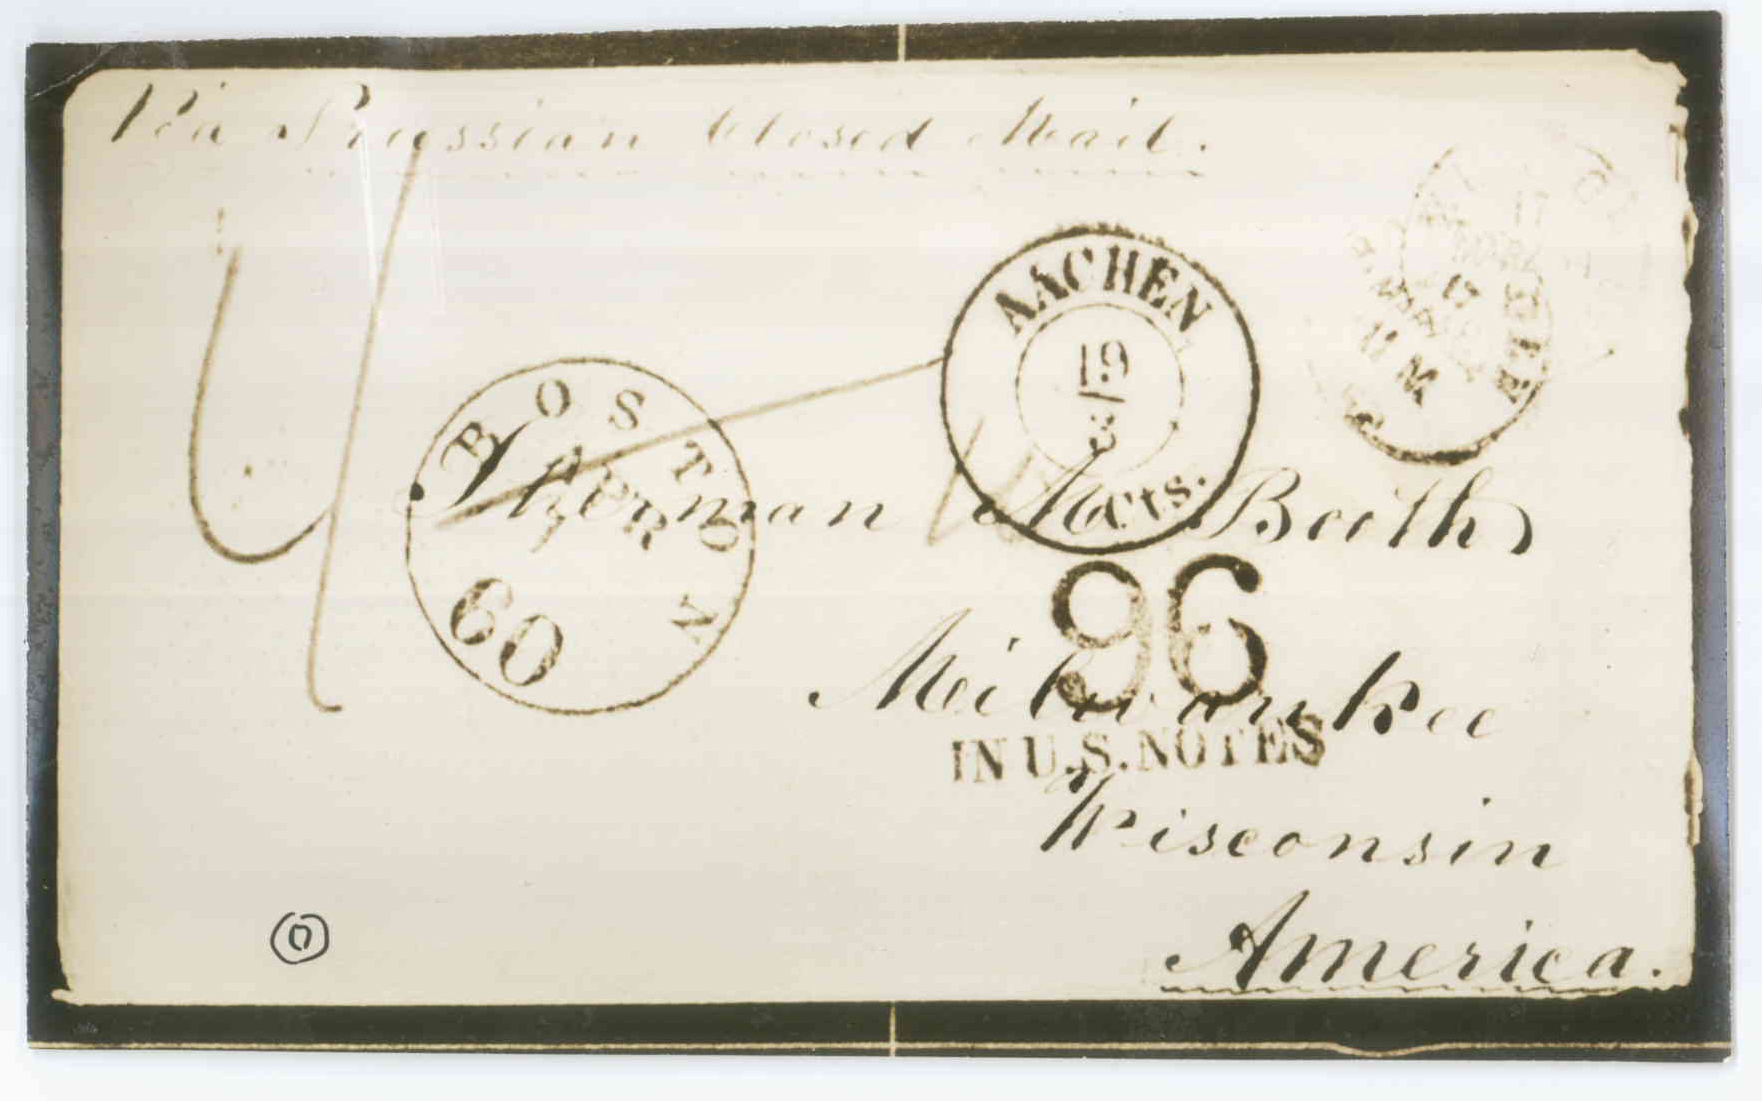 Via Prussian Closed Mail.
AACHEN
19
3
Cts.
BOSTON
APR
7
60
Sherman M. Booth
96
Milwaukee
IN U.S. NOTES
Wisconsin
America.